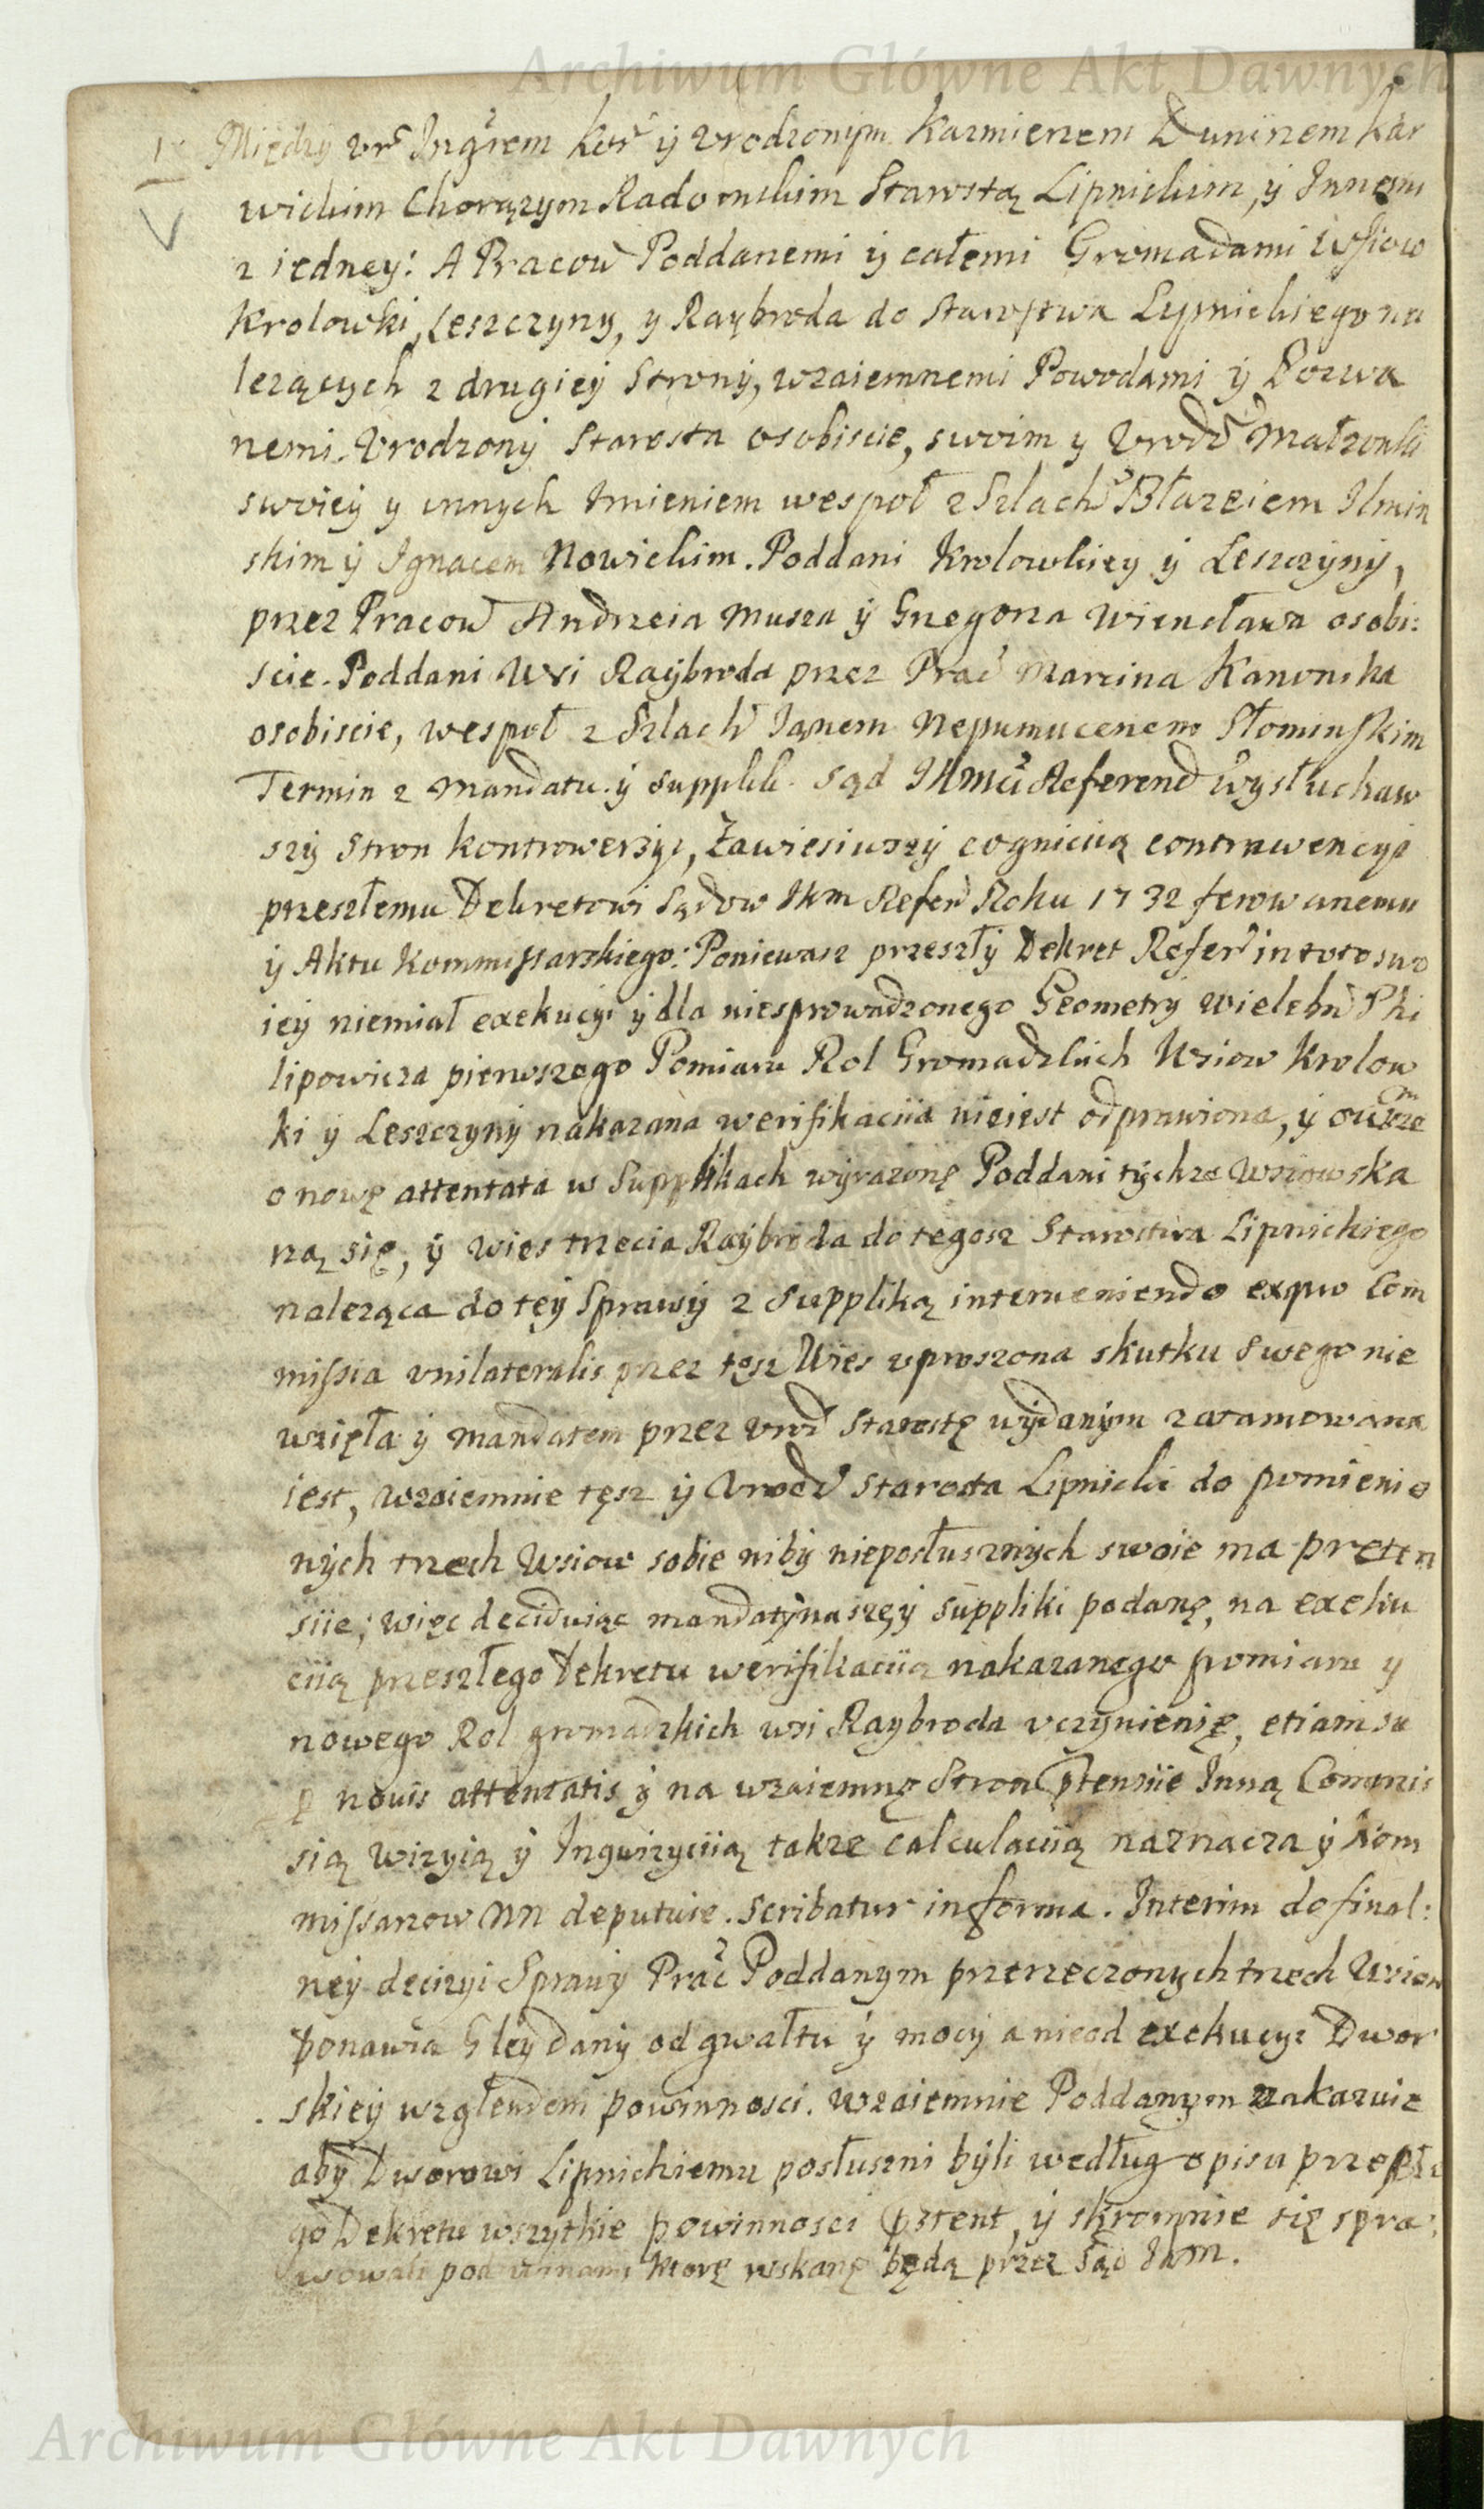 Archiwum Główne Akt Dawnych
Między Ur Insgrem Ktr ÿ Vrodzonÿm Kazmierzem Duninem Kar
wickim Chorązym Radomskim Starostą Lipnickim, ÿ Innemi
z iedney: A Pracow Poddanemi ÿ całemi Gromadami Wsiow
Krolowki, Leszczyny, y Raybroda do Starostwa Lypnickiego na
lezących z drugieÿ Stronÿ, wzaiemnemi Powodami ÿ Pozwa
nemi. Vrodzonÿ Starosta osobiscie, swoim y Vrodz Małzonki
swoieÿ y innych Imieniem wespoł z Szlach Błazeiem Ilmin
skim ÿ Ignacem Nowickim. Poddani Krolowkiey ÿ Leszczÿnÿ,
przez Pracow Andrzeia Musza ÿ Grzegorza Wiencława osobi:
scie. Poddani Wsi Raÿbroda przez Prac Marcina Kanonika
osobiscie, wespoł z Szlach Ianem Nepumucenem Słominskim
Termin z Mandatu ÿ Supplik. Sąd IKMci Referend wÿsłuchaw
szÿ Stron kontrowersÿi, Zawiesiwszÿ cognicią contrawencÿi
przeszłemu Dekretowi Sądow IKm Refen Roku 1732 ferowanemu
ÿ Aktu Kommissarskiego: Poniewasz przeszłÿ Dekret Refer in toto swo
ieÿ niemiał exekucÿi ÿ dla niesprowadzonego Geometrÿ Wielebn Phi
lipowicza pierwszego Pomiaru Rol Gromadzkich Wsiow Krolow
ki ÿ Leszczynÿ nakazana werifikaciia nieiest odprawiona, ÿ owszem
o nowę attentata w Supplikach wÿrazonę Poddani tÿchze Wsiow ska
rzą się, ÿ wies trzecia Raÿbroda do tegosz Starostwa Lipnickiego
nalezącą do teÿ Sprawÿ z Suppliką interueniendo exquo Com
missia vnilateralis przez tęsz Wies vproszona skutku swego nie
wzięła ÿ Mandatem przez Vrod Starostę wÿdanÿm zatamowana
iest, wzaiemnie tęsz ÿ Vrodz Starosta Lipnicki do pomienio
nÿch trzech Wsiow sobie nibÿ nieposłusznÿch swoie ma preten
siie; więc deciduiąc mandatÿ naszę ÿ suppliki podanę, na exeku
ciią przeszłego Dekretu werifikaciią nakazanego pomiaru y
nowego Rol gromadzkich wsi Raybroda vczynienię, etiam su
p nouis attentatis ÿ na wzaiemnę Stron ptensiie Inną Commis
sią wizyią ÿ Inquizyciią takze calculaciią naznacza ÿ Kom
missarzow NN deputuie. Scribatur in forma. Interim do final:
neÿ decizyi Sprawÿ Prac Poddanym przerzeczonych trzech Wsiow
ponawia Gleÿ danÿ od gwałtu ÿ mocÿ a nieod exekucyi Dwor
skieÿ wzglendem powinnosci. Wzaiemnie Poddanÿm nakazuie
abÿ Dworowi Lipnickiemu posłuszni bÿli według opisu przeszłe
go Dekretu wszytkie powinnosci ÿ skromnie się spra:
wowali pod winami ktorę wskanę będą przez Sąd IKM.
Archiwum Główne Akt Dawnych